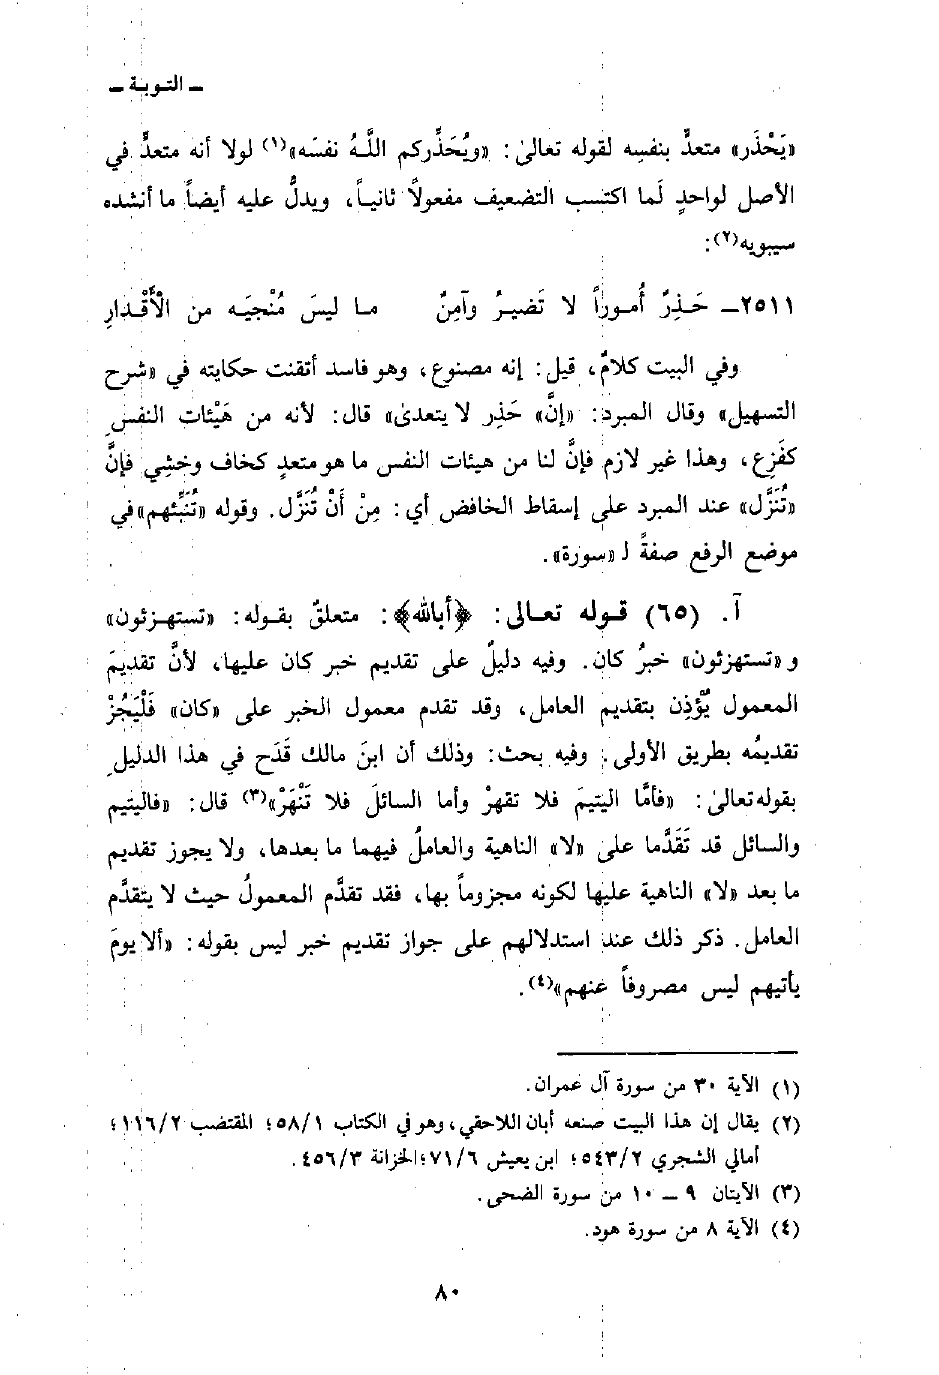 ـ التـوبـة ـ
«يَحْذَر» متعدٍّ بنفسِه لقوله تعالىٰ: «ويُحَذِّركم اللَّهُ نفسَه»(١) لولا أنه متعدٍّ في
الأصل لواحدٍ لَما اكتسب التضعيف مفعولاً ثانياً، ويدلُّ عليه أيضاً ما أنشده
سيبويه(٢):
٢٥١١ـ حَـذِرٌ أُمـوراً لا تَضيـرُ وآمِنٌ ما ليسَ مُنْجيَـه من الْأَقْـدارِ
وفي البيت كلامٌ، قيل: إنه مصنوع، وهو فاسد أتقنت حكايته في «شرح
التسهيل» وقال المبرد: «إنَّ» حَذِر لا يتعدىٰ» قال: لأنه من هَيْئات النفسِ
كفَزِع، وهذا غير لازم فإنَّ لنا من هيئات النفس ما هو متعدٍ كخاف وخشِي فإنَّ
«تُنَزَّل» عند المبرد على إسقاط الخافض أي: مِنْ أَنْ تُنَزَّل. وقوله «تُنَبِّئهم» في
موضع الرفع صفةً لـ «سورة».
آ. (٦٥) قـولـه تعـالى: ﴿أبالله﴾: متعلقٌ بقـوله: «تستهـزئون»
و «تستهزئون» خبرُ كان. وفيه دليلٌ على تقديم خبر كان عليها، لأنَّ تقديمَ
المعمول يُؤْذِن بتقديم العامل، وقد تقدم معمول الخبر على «كان» فَلْيَجُزْ
تقديمُه بطريق الأولى. وفيه بحث: وذلك أن ابنَ مالك قَدَح في هذا الدليلِ
بقوله تعالىٰ: «فأمَّا اليتيمَ فلا تقهرْ وأما السائلَ فلا تَنْهَرْ»(٣) قال: «فاليتيم
والسائل قد تَقَدَّما على «لا» الناهية والعاملُ فيهما ما بعدها، ولا يجوز تقديم
ما بعد «لا» الناهية عليها لكونه مجزوماً بها، فقد تقدَّم المعمولُ حيث لا يتقدَّم
العامل. ذكر ذلك عند استدلالهم على جواز تقديم خبر ليس بقوله: «ألا يومَ
يأتيهم ليس مصروفاً عنهم»(٤).
(١) الآية ٣٠ من سورة آل عمران.
(٢) يقال إن هذا البيت صنعه أبان اللاحقي، وهو في الكتاب ٥٨/١؛ المقتضب ١١٦/٢؛
أمالي الشجري ٥٤٣/٢؛ ابن يعيش ٧١/٦؛ الخزانة ٤٥٦/٣.
(٣) الآيتان ٩ ـ ١٠ من سورة الضحى.
(٤) الآية ٨ من سورة هود.
٨٠